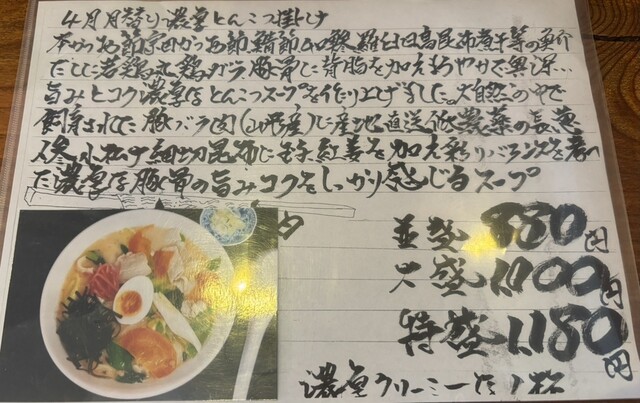 4月月替り濃厚とんこつ掛け
本かつお節宗田かつお節鯖節 羅臼日高昆布煮干等の魚介
だしに若鶏丸鶏ガラ豚骨に背脂を加えまろやかで奥深…
旨みとコク濃厚なとんこつスープを作り上げました。大自然の中で
飼育された豚バラ肉(山県産)に産地直送低農薬の長葱
人参小松菜細切昆布に 紅姜を加え彩りバランスを考へ
た濃厚な豚骨の旨みコクをしっかり感じるスープ
並盛 880円
大盛 1,100円
特盛 1,180円
濃厚クリーミーな1杯